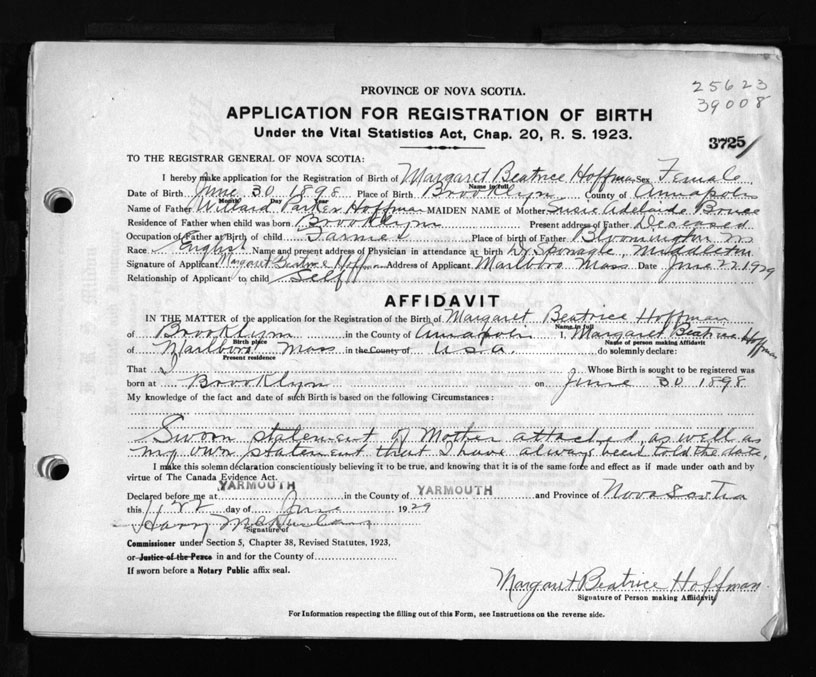 PROVINCE OF NOVA SCOTIA.
25623
39008
APPLICATION FOR REGISTRATION OF BIRTH
Under the Vital Statistics Act, Chap. 20, R. S. 1923.
3725/
TO THE REGISTRAR GENERAL OF NOVA SCOTIA:
I hereby make application for the Registration of Birth of Margaret Beatrice Hoffman Sex Female
Name in full
Date of Birth June 30 1898 Place of Birth Brooklyn County of Annapolis
Month Day Year
Name of Father Willard Parker Hoffman MAIDEN NAME of Mother Susie Adelaide
Residence of Father when child was born Brooklyn Present address of Father Deceased
Occupation of Father at Birth of child Farmer Place of birth of Father Bloomington NS
Race English Name and present address of Physician in attendance at birth Dr Sponagle, Middleton
Signature of Applicant Margaret Beatrice Hoffman Address of Applicant Marlboro Mass Date June 22 1929
Relationship of Applicant to child Self
AFFIDAVIT
IN THE MATTER of the application of the Registration of the Birth of Margaret Beatrice Hoffman
Name in full
of Brooklyn in the County of Annapolis I, Margaret Beatrice Hoffman
Birth place Name of person making Affidavit
of Marlboro Mass in the County of U.S.A. do solemnly declare:
Present residence
That I Whose Birth is sought to be registered was
born at Brooklyn on June 30 1898
My knowledge of the fact and date of such Birth is based on the following Circumstances:
Sworn statement of Mother attached, as well as
my own statement that I have always been told the date,
I make this solemn declaration conscientiously believing it to be true, and knowing that it is of the same force and effect as if made under oath and by
virtue of The Canada Evidence Act.
Declared before me at YARMOUTH in the County of YARMOUTH and Province of Nova Scotia
this 22 day of June 1929
Harry
Signature of
Commissioner under Section 5, Chapter 38, Revised Statutes, 1923,
or Justice of the Peace in and for the County of
If sworn before a Notary Public affix seal.
Margaret Beatrice Hoffman
Signature of Person making Affidavit
For Information respecting the filling out of this Form, see Instructions on the reverse side.